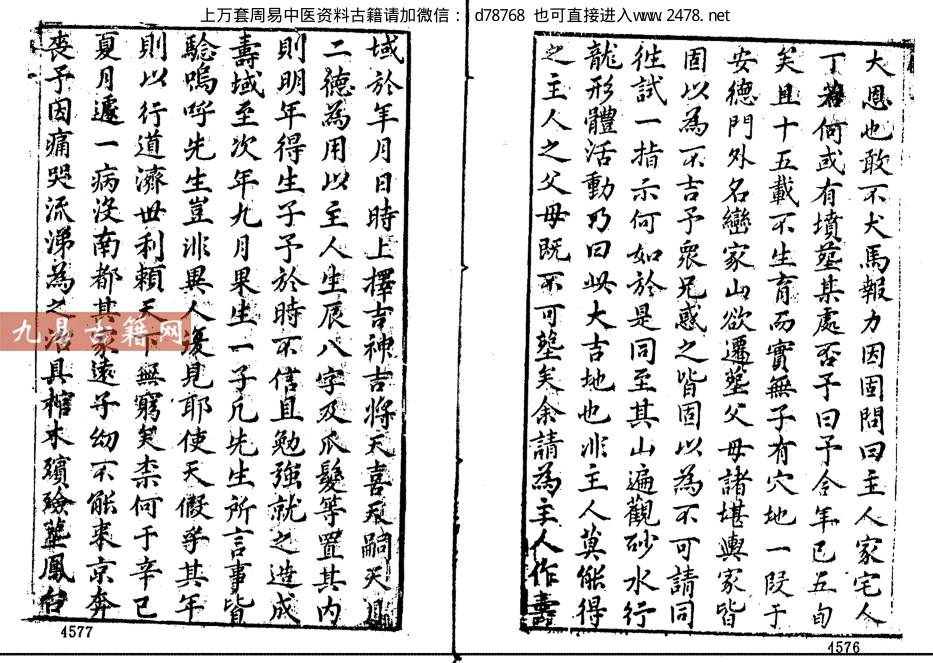 上万套周易中医资料古籍请加微信： d78768 也可直接进入www.2478.net
大恩也敢不犬馬報力因固問曰主人家宅人
丁若何或有墳塋某處否予曰予今年已五旬
矣且十五載不生育而實無子有穴地一段于
安德門外名巒家山欲遷塟父母諸堪輿家皆
固以為不吉予衆兄惑之皆固以為不可請同
徃試一指示何如於是同至其山遍觀砂水行
龍形體活動乃曰此大吉地也非主人莫能得
之主人之父母既不可塟矣余請為主人作壽
4576
域於年月日時上擇吉神吉將天喜天嗣天
二德為用以主人生辰八字及爪髮等置其內
則明年得生子予於時不信且勉強就之造成
壽域至次年九月果生一子凡先生所言事皆
驗嗚呼先生豈非異人復見耶使天假乎其年
則以行道濟世利賴天下無窮矣柰何于辛已
夏月遘一病沒南都其家遠子幼不能來京奔
喪予因痛哭流涕為之治具棺木殯殮塟鳳台
4577
九易古籍网